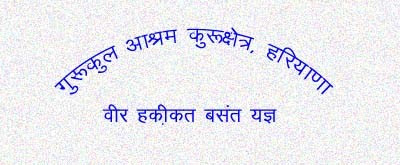 गुरूकुल आश्रम कुरूक्षेत्र, हरियाणा
वीर हकी़कत बसंत यज्ञ